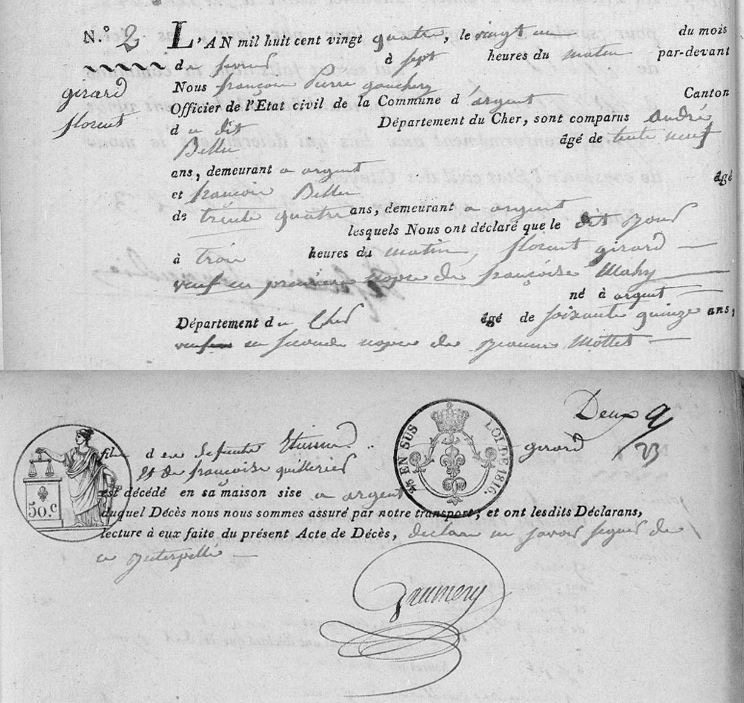 N.° 2 L'AN mil huit cent vingt quatre, le vingt un du mois
de fevrier à sept heures du matin par-devant
girard Nous françois Pierre
florent Officier de l'Etat civil de la Commune d'argent Canton
du dit Département du Cher, sont comparus André
Bellu âgé de trente neuf
ans, demeurant a argent
et françois Bellu âgé
de trente quatre ans, demeurant a argent
lesquels Nous ont déclaré que le dit jour
à trois heures du matin, florent girard
veuf en premiere noce de françoise Mahy
né à argent
Département du Cher âgé de soixante quinze ans,
veuf en seconde noce de Mottet
Deux 9
/23
fils de defunts Etienne girard
et de françoise
est décédé en sa maison sise a argent
duquel Décès nous nous sommes assuré par notre transport, et ont lesdits Déclarans,
lecture à eux faite du présent Acte de Décès, déclaré ne savoir signer de
ce interpellé
50.c
EN SUS LOI DE 1816.